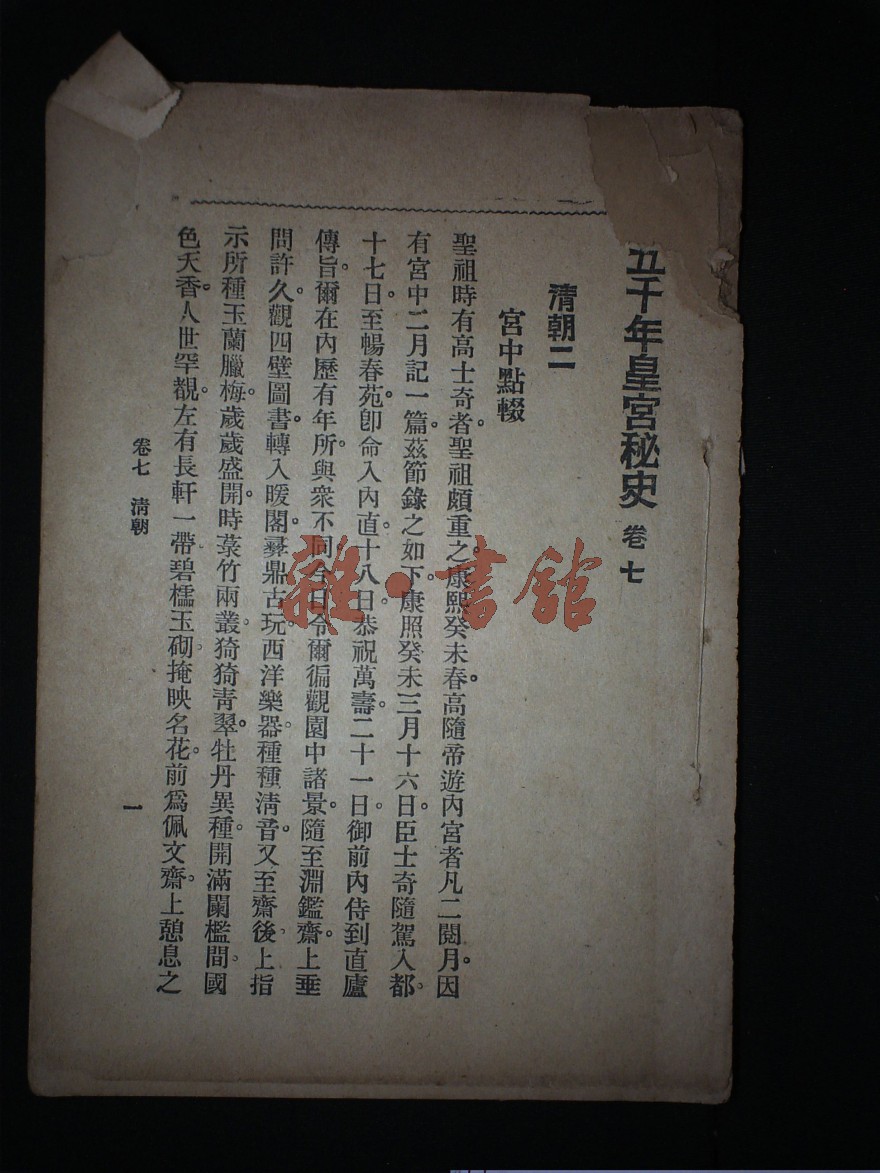 五千年皇宮秘史 卷七
清朝二
宮中點輟
聖祖時有高士奇者聖祖頗重之康熙癸未春。高隨帝遊內宮者凡二閱月。因
有宮中二月記一篇。茲節錄之如下。康照癸未三月十六日。臣士奇隨駕入都。
十七日。至暢春苑。卽命入內直。十八日。恭祝萬壽。二十一日。御前內侍到直廬
傳旨。爾在內歷有年所。與衆不同。今日令爾徧觀園中諸景。隨至淵鑑齋。上垂
問許久。觀四壁圖書。轉入暖閣。彝鼎古玩。西洋樂器。種種淸音。又至齋後。上指
示所種玉蘭臘梅。歲歲盛開。時菉竹兩叢。猗猗靑翠。牡丹異種。開滿闌檻間。國
色天香。人世罕覩。左有長軒一帶。碧檽玉砌。掩映名花。前爲佩文齋。上憩息之
卷七 淸朝
一
雜·書館